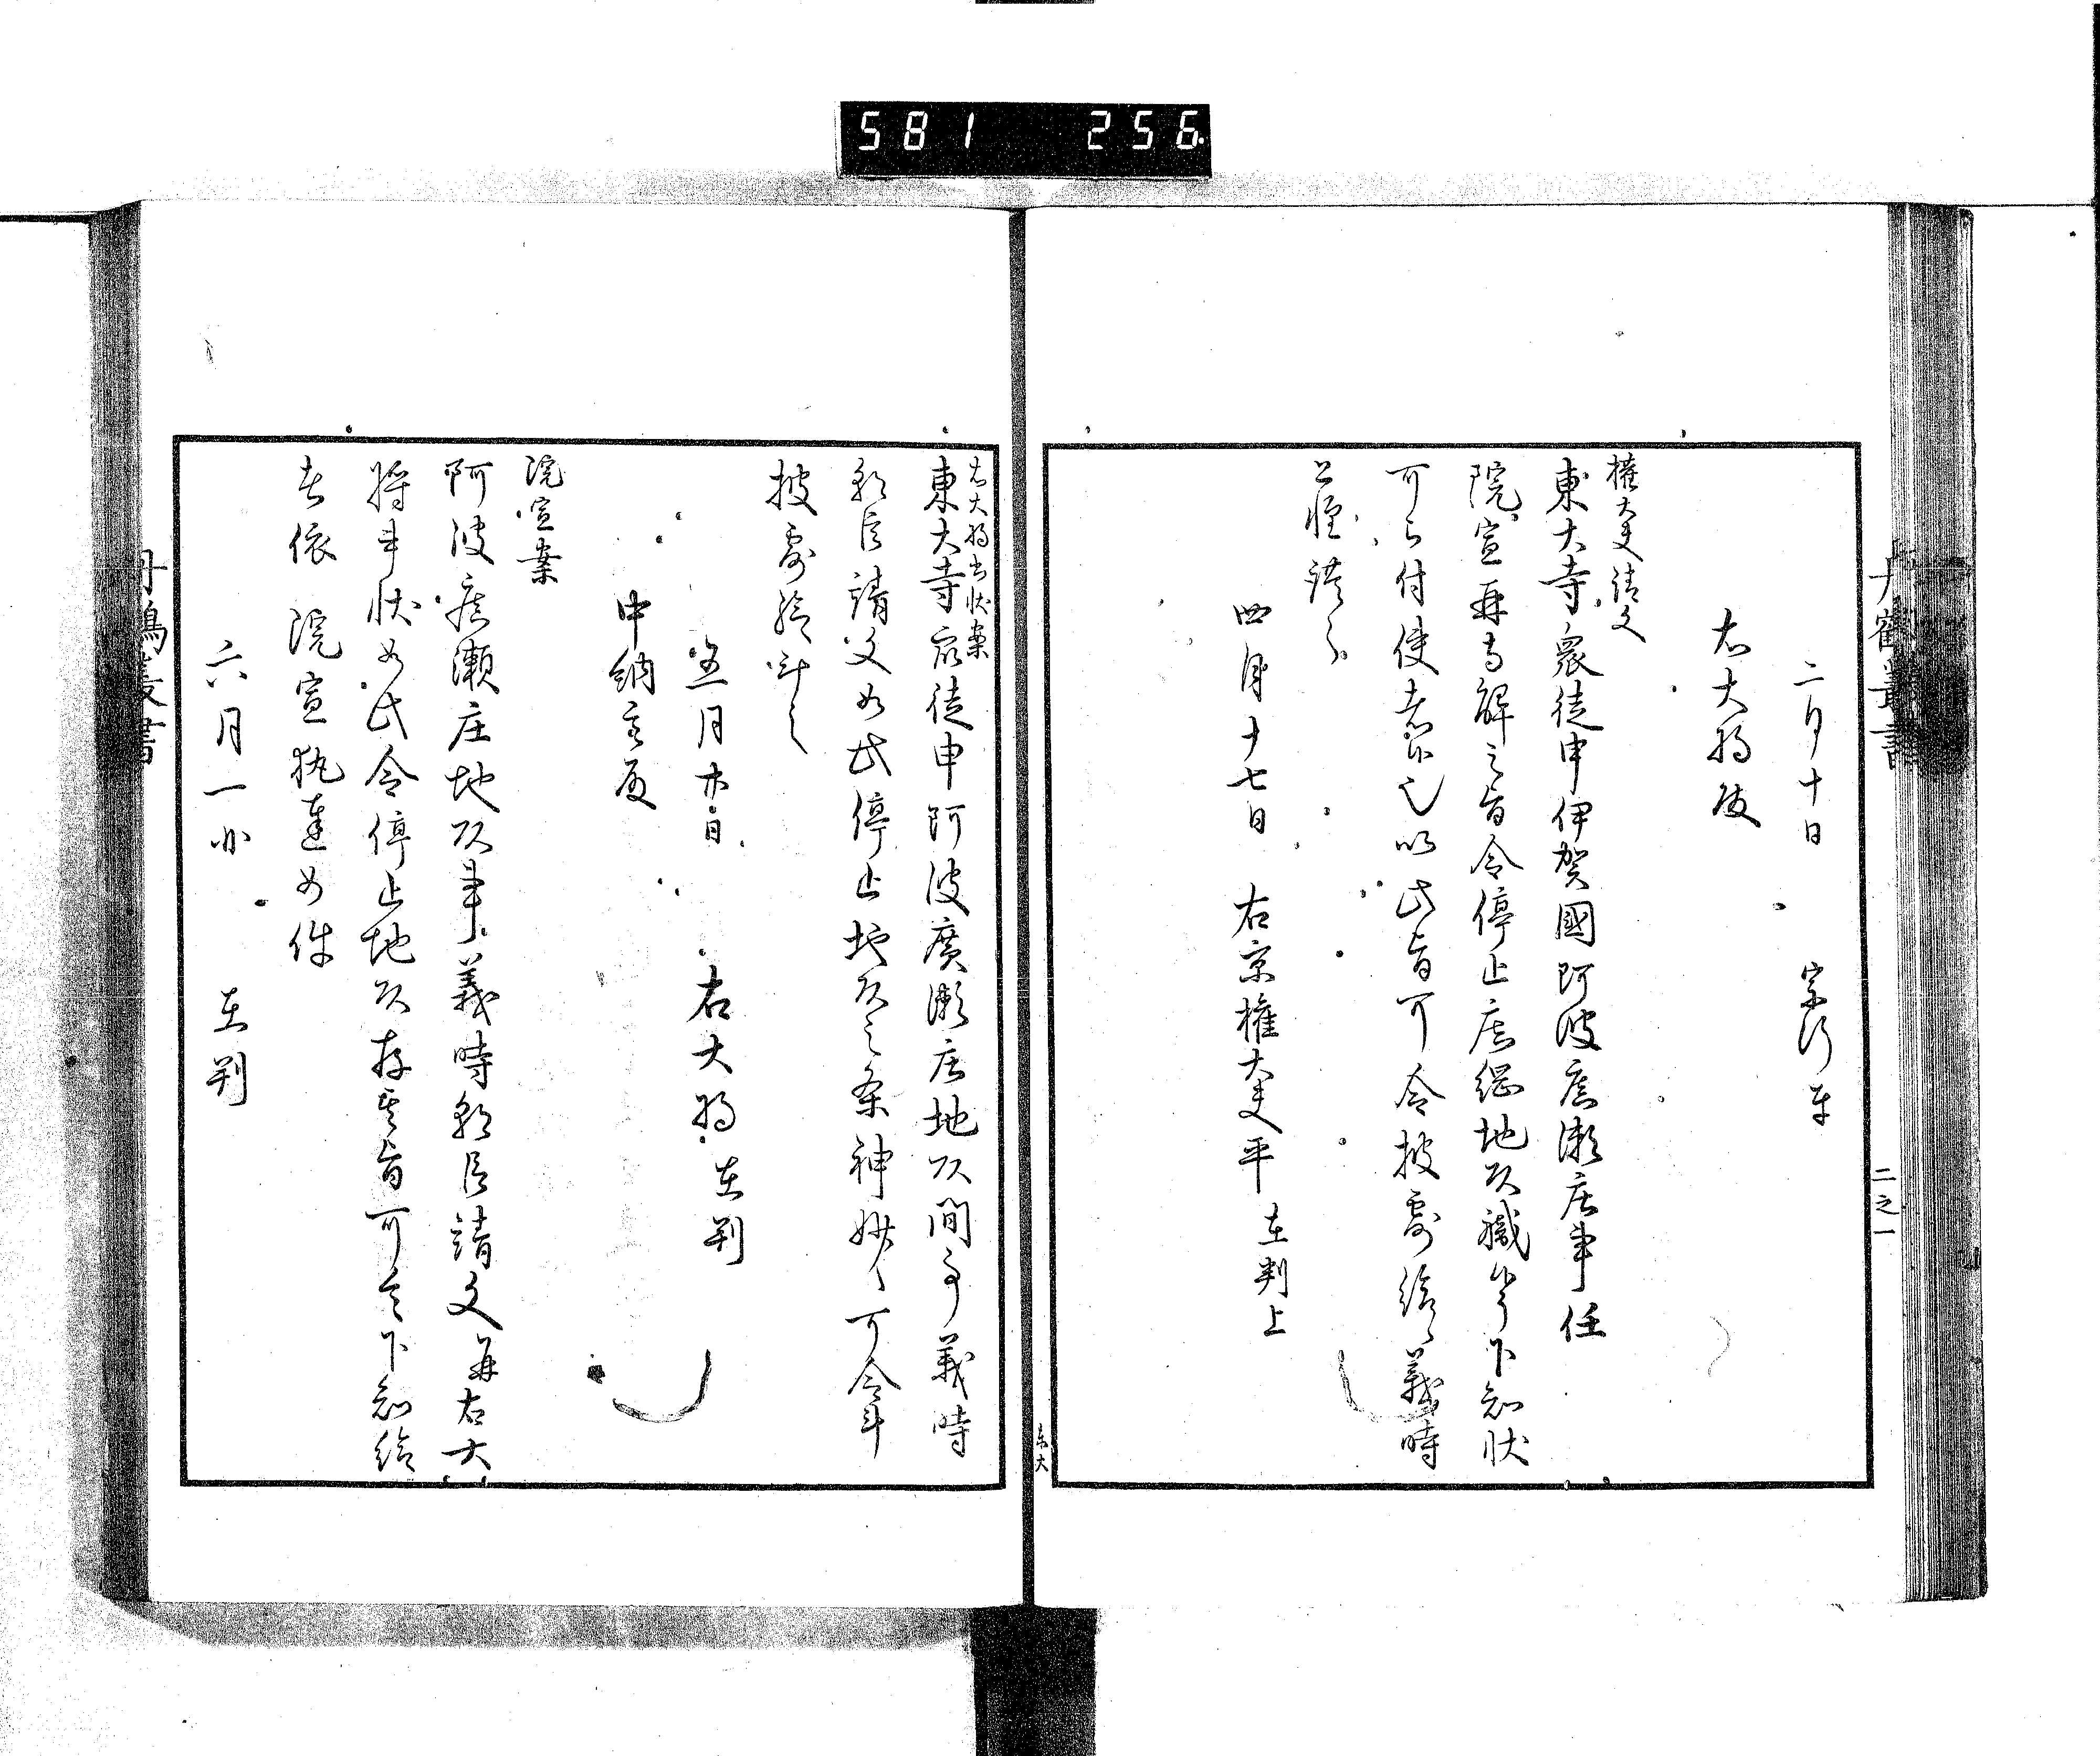 581 256
丹鶴叢書
二之一
二月十日 宗行奉
右大将殿
権大夫請文
東大寺衆徒申伊賀國阿波広瀬庄事任
院宣并寺解之旨令停止広綱地頭職候了下知状
可令付使者候也以此旨可令披露給義時
恐惶謹言
四月十七日 右京権大夫平 在判上
東大
右大将書状案
東大寺衆徒申阿波廣瀬庄地頭間事義時
朝臣請文如此停止地頭之条神妙候可令計
披露給歟之
五月廿日 右大将在判
中納言殿
院宣案
阿波広瀬庄地頭事義時朝臣請文并右大
将書状如此令停止地頭存其旨可令下知給
者依 院宣執達如件
六月一日 在判
丹鶴叢書